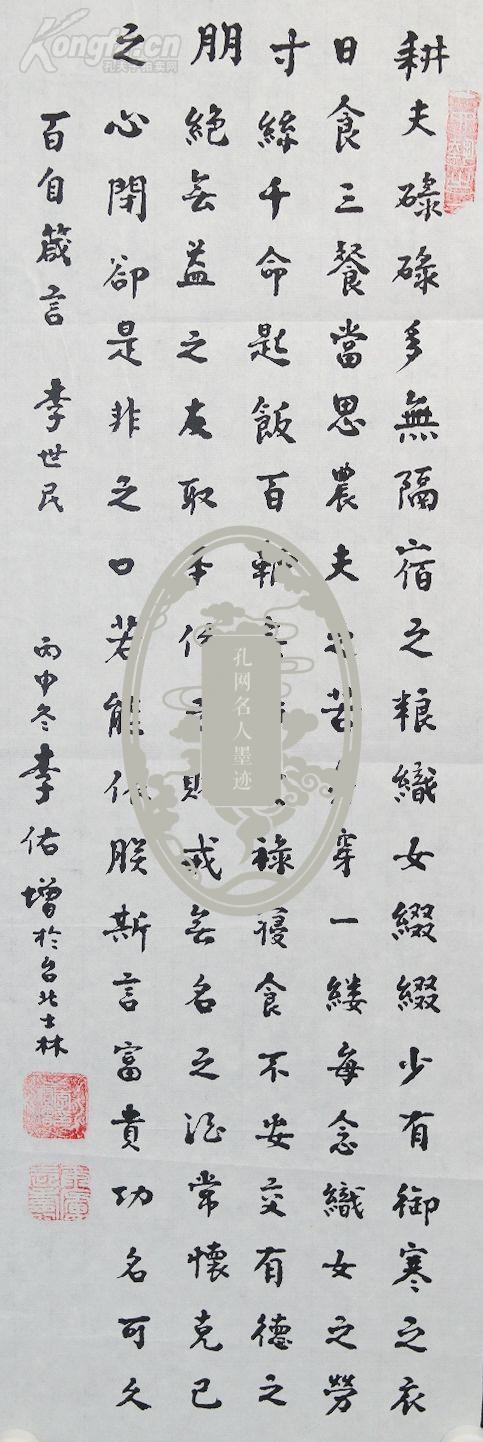 耕夫碌碌多無隔宿之粮織女綴綴少有御寒之衣
日食三餐當思農夫之苦身穿一縷每念織女之勞
寸絲千命匙飯百祿寢食不安交有德之
朋絕無益之友取本份之財戒無名之酒常懷克己
之心閉卻是非之口若能依朕斯言富貴功名可久
百自箴言 李世民 丙申冬李佑增於台北士林
孔网名人墨迹
Kongfz.cn
孔夫子拍卖网